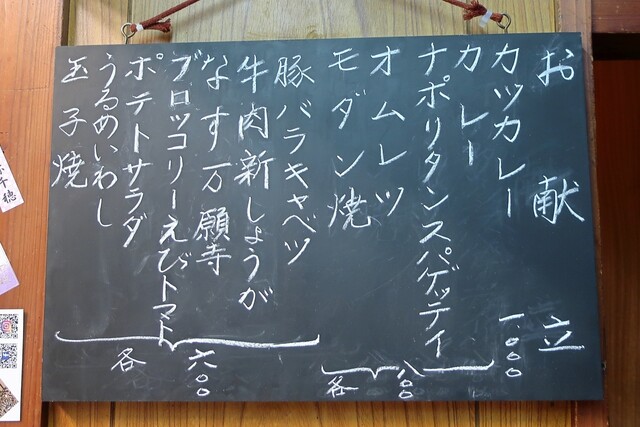 お献立
カツカレー 一、〇〇〇
カレー
ナポリタンスパゲッテイ
オムレツ
モダン焼
各 八〇〇
豚バラキャベツ
牛肉新しょうが
なす万願寺
ブロッコリーえびトマト
ポテトサラダ
うるめいわし
玉子焼
各 六〇〇